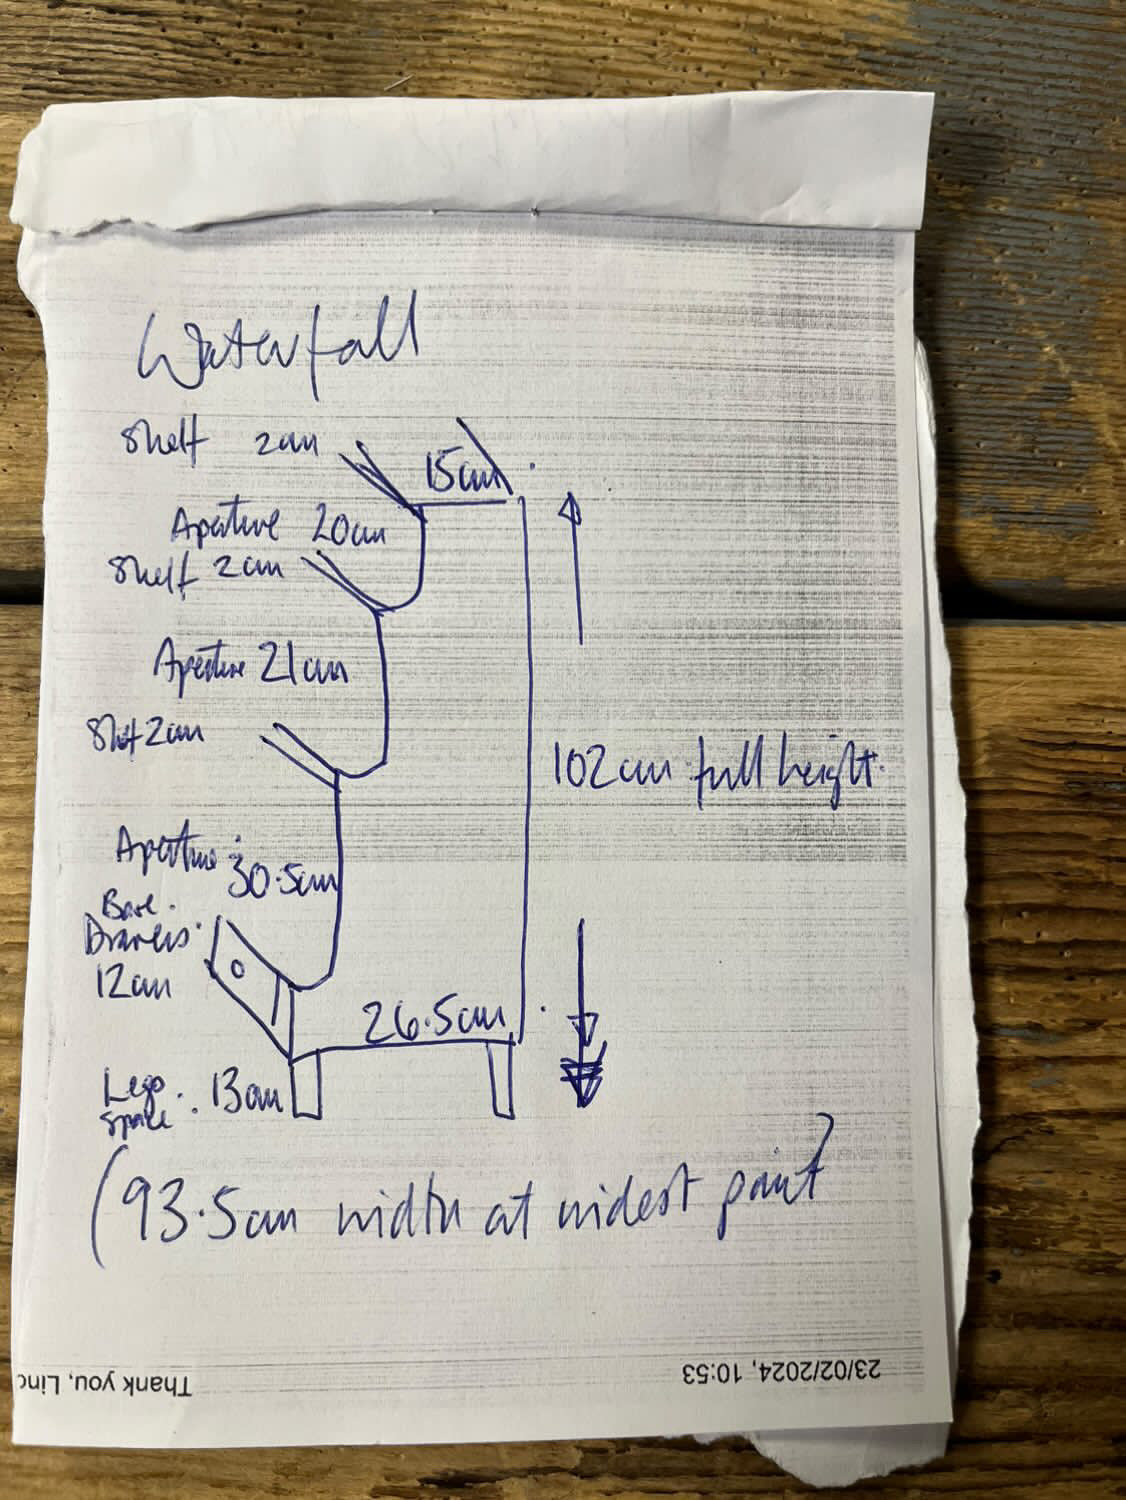 Waterfall
Shelf 2cm
15cm
Aperture 20cm
Shelf 2cm
Aperture 21cm
Shelf 2cm
102cm full height.
Aperture 30.5cm
Base.
Drawers.
12cm
26.5cm
Legs. 13cm
Space.
(93.5cm width at widest point)
23/02/2024, 10:53
Thank you, Linc